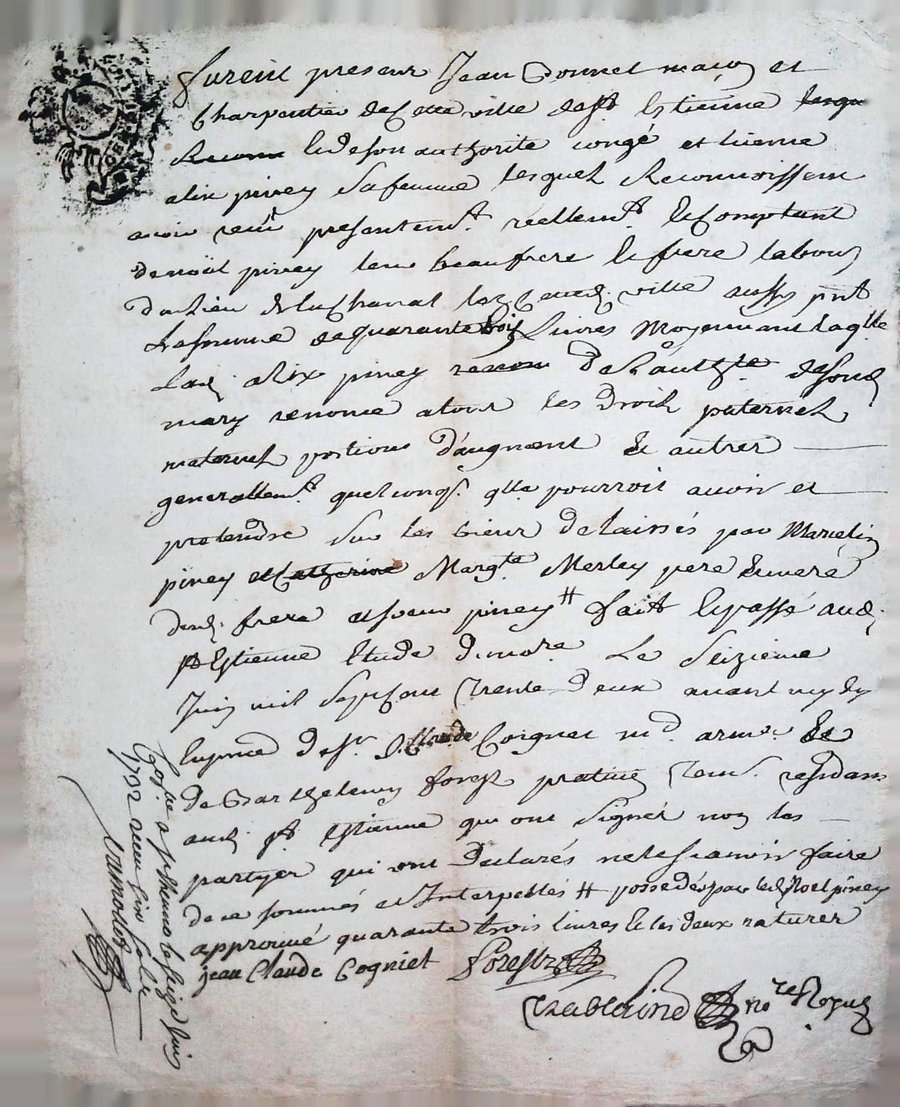 furent presens Jean Bonnet maçon et
Charpentier de Cette ville de st Estienne lesque
Reconn & de son authorite congé et licence
alix piney sa femme lesquels Reconnoissent
avoir reçu presentemt reellemt & Comptant
de noël piney leur beaufrere & frere labour
du lieu de la Chanal lez Cetted. ville aussy pnt
La somme de quarante trois Livres Moyennant laqlle
Lad. alix piney de l'authte de sond
mary renonce a tous les droits paternels
maternels portions d'augment & autres
generallemt quelconqs. qlle pourroit avoir et
pretendre sur les biens delaissés par Marcelin
piney et Catherine Margte Merley pere & mere
desd. frere et soeur piney # fait & passé aud.
st Estienne Etude de nore. Le Seizieme
Juin mil sept cent trente deux avant midy
en pnce de sr. J. Claude Cogniet md. armr. &
de Barthelemy forest praticien tems. residans
aud. st Estienne qui ont Signé non les
partyes qui ont declarés ne le scavoir faire
de ce sommés et Interpellés # possedés par led. Noel piney
approuvé quarante trois livres & les deux ratures
jean Claude Cogniet forest
Chableing nore Royal
a st Estienne le seize Juin
1732 reçu six sols